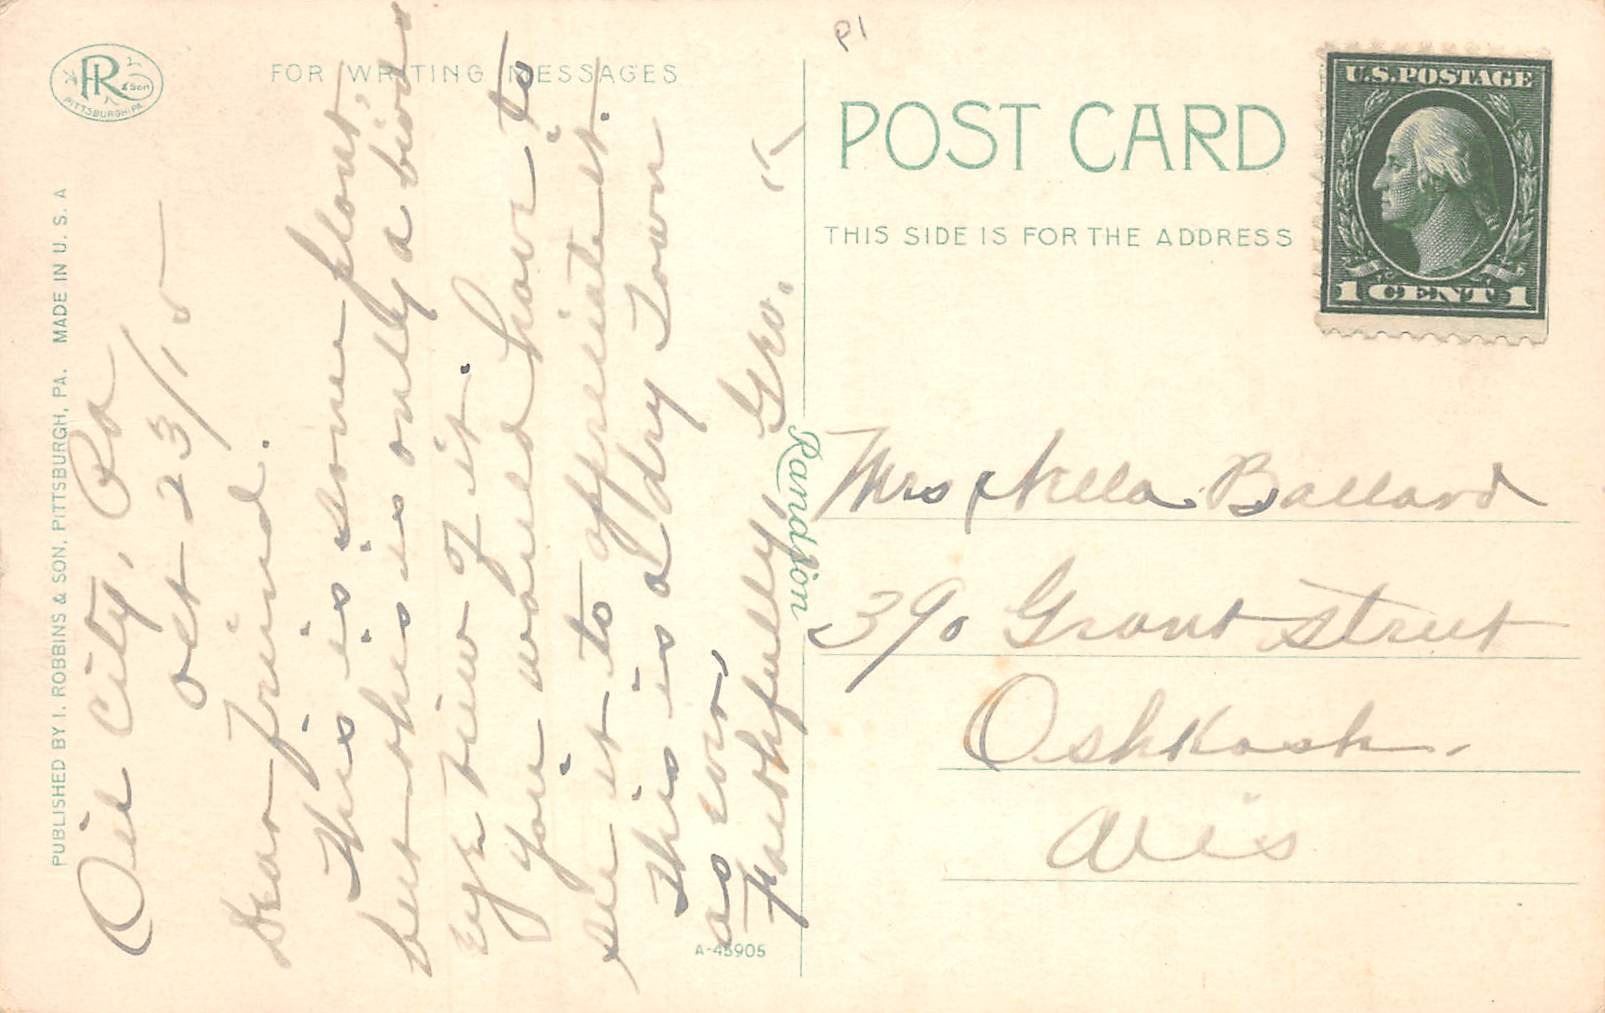 P1
R & Son
PITTSBURGH, PA.
FOR WRITING MESSAGES
POST CARD
THIS SIDE IS FOR THE ADDRESS
U.S. POSTAGE
1 CENT 1
PUBLISHED BY I. ROBBINS & SON, PITTSBURGH, PA. MADE IN U. S. A
Oil City, Pa
Oct 23/15
Dear friend.
This is some plant,
but this is only a birds
eye view of it.
you would have to
see it to appreciate it.
This is a dry Town
as ever,
Faithfully Geo.
A-45905
Mrs Nella Ballard
390 Grant Street
Oshkosh.
Wis